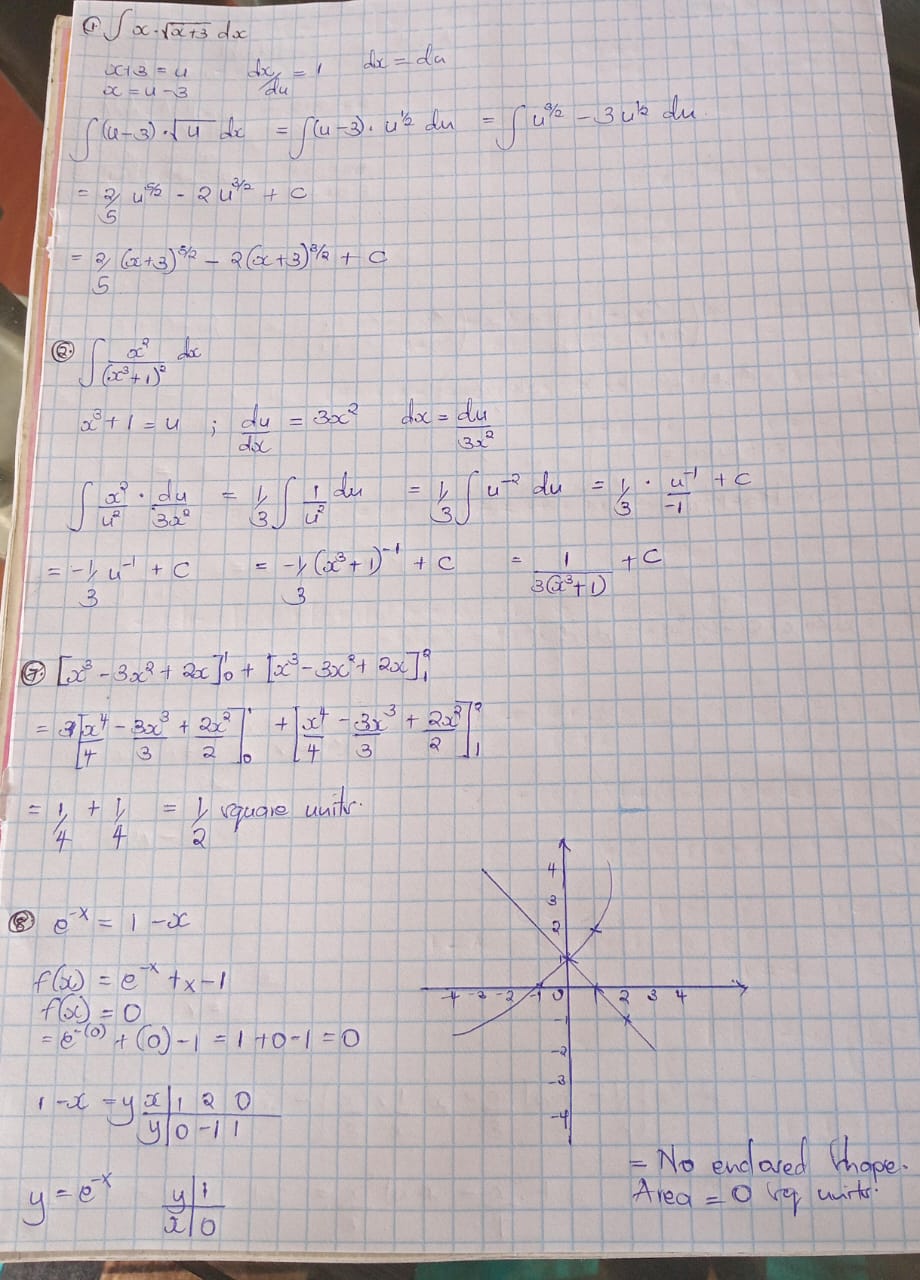 ① ∫ x·√(x+3) dx
x+3 = u    dx/du = 1    dx = du
x = u−3
∫(u−3)·√u dx = ∫(u−3)·u^(1/2) du = ∫u^(3/2) − 3u^(1/2) du.
= 2/5 u^(5/2) − 2u^(3/2) + C
= 2/5 (x+3)^(5/2) − 2(x+3)^(3/2) + C
②. ∫ x²/(x³+1)² dx
x³+1 = u ; du/dx = 3x²    dx = du/3x²
∫ x²/u² · du/3x² = 1/3 ∫ 1/u² du = 1/3 ∫ u^(−2) du = 1/3 · u^(−1)/−1 + C
= −1/3 u^(−1) + C = −1/3 (x³+1)^(−1) + C = 1/(3(x³+1)) + C
⑦. [x³ − 3x² + 2x]₀¹ + [x³ − 3x² + 2x]₁²
= [x⁴/4 − 3x³/3 + 2x²/2]₀¹ + [x⁴/4 − 3x³/3 + 2x²/2]₁²
= 1/4 + 1/4 = 1/2 square units.
⑧ e^(−x) = 1 − x
f(x) = e^(−x) + x − 1
f(x) = 0
= e^(−(0)) + (0) − 1 = 1 + 0 − 1 = 0
4
3
2
1
−4 −3 −2 −1 0 2 3 4
−1
−2
−3
−4
1 − x = y    x | 1 2 0
y | 0 −1 1
y = e^(−x)    y | 1
x | 0
= No enclosed shape.
Area = 0 sq units.